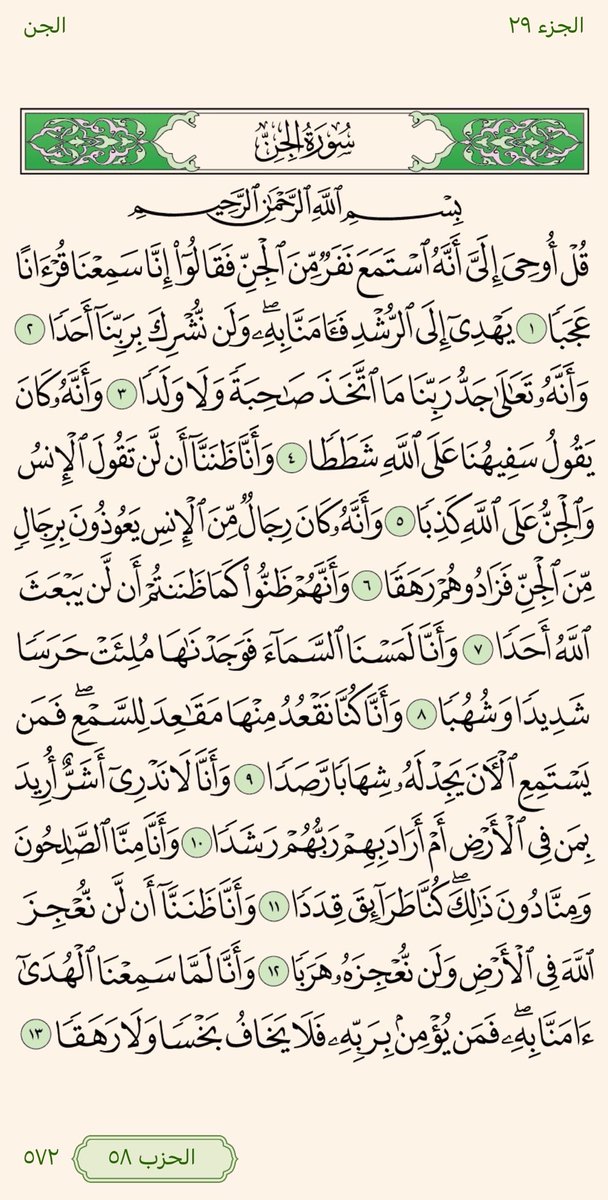 الجزء ٢٩
الجن
سُورَةُ الجِنِّ
بِسْمِ ٱللَّهِ ٱلرَّحْمَٰنِ ٱلرَّحِيمِ
قُلْ أُوحِىَ إِلَىَّ أَنَّهُ ٱسْتَمَعَ نَفَرٌ مِّنَ ٱلْجِنِّ فَقَالُوٓا۟ إِنَّا سَمِعْنَا قُرْءَانًا
عَجَبًا ١ يَهْدِىٓ إِلَى ٱلرُّشْدِ فَـَٔامَنَّا بِهِۦۖ وَلَن نُّشْرِكَ بِرَبِّنَآ أَحَدًا ٢
وَأَنَّهُۥ تَعَٰلَىٰ جَدُّ رَبِّنَا مَا ٱتَّخَذَ صَٰحِبَةً وَلَا وَلَدًا ٣ وَأَنَّهُۥ كَانَ
يَقُولُ سَفِيهُنَا عَلَى ٱللَّهِ شَطَطًا ٤ وَأَنَّا ظَنَنَّآ أَن لَّن تَقُولَ ٱلْإِنسُ
وَٱلْجِنُّ عَلَى ٱللَّهِ كَذِبًا ٥ وَأَنَّهُۥ كَانَ رِجَالٌ مِّنَ ٱلْإِنسِ يَعُوذُونَ بِرِجَالٍ
مِّنَ ٱلْجِنِّ فَزَادُوهُمْ رَهَقًا ٦ وَأَنَّهُمْ ظَنُّوا۟ كَمَا ظَنَنتُمْ أَن لَّن يَبْعَثَ
ٱللَّهُ أَحَدًا ٧ وَأَنَّا لَمَسْنَا ٱلسَّمَآءَ فَوَجَدْنَٰهَا مُلِئَتْ حَرَسًا
شَدِيدًا وَشُهُبًا ٨ وَأَنَّا كُنَّا نَقْعُدُ مِنْهَا مَقَٰعِدَ لِلسَّمْعِۖ فَمَن
يَسْتَمِعِ ٱلْـَٔانَ يَجِدْ لَهُۥ شِهَابًا رَّصَدًا ٩ وَأَنَّا لَا نَدْرِىٓ أَشَرٌّ أُرِيدَ
بِمَن فِى ٱلْأَرْضِ أَمْ أَرَادَ بِهِمْ رَبُّهُمْ رَشَدًا ١٠ وَأَنَّا مِنَّا ٱلصَّٰلِحُونَ
وَمِنَّا دُونَ ذَٰلِكَۖ كُنَّا طَرَآئِقَ قِدَدًا ١١ وَأَنَّا ظَنَنَّآ أَن لَّن نُّعْجِزَ
ٱللَّهَ فِى ٱلْأَرْضِ وَلَن نُّعْجِزَهُۥ هَرَبًا ١٢ وَأَنَّا لَمَّا سَمِعْنَا ٱلْهُدَىٰٓ
ءَامَنَّا بِهِۦۖ فَمَن يُؤْمِنۢ بِرَبِّهِۦ فَلَا يَخَافُ بَخْسًا وَلَا رَهَقًا ١٣
الحزب ٥٨
٥٧٢